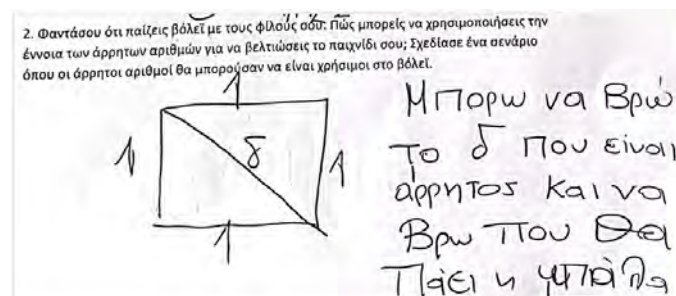 2. Φαντάσου ότι παίζεις βόλεϊ με τους φίλους σου: Πώς μπορείς να χρησιμοποιήσεις την
έννοια των άρρητων αριθμών για να βελτιώσεις το παιχνίδι σου; Σχεδίασε ένα σενάριο
όπου οι άρρητοι αριθμοί θα μπορούσαν να είναι χρήσιμοι στο βόλεϊ.
1
1 δ 1
1
Μπορω να Βρώ
το δ που είναι
άρρητος και να
Βρω που θα
πάει η μπάλα